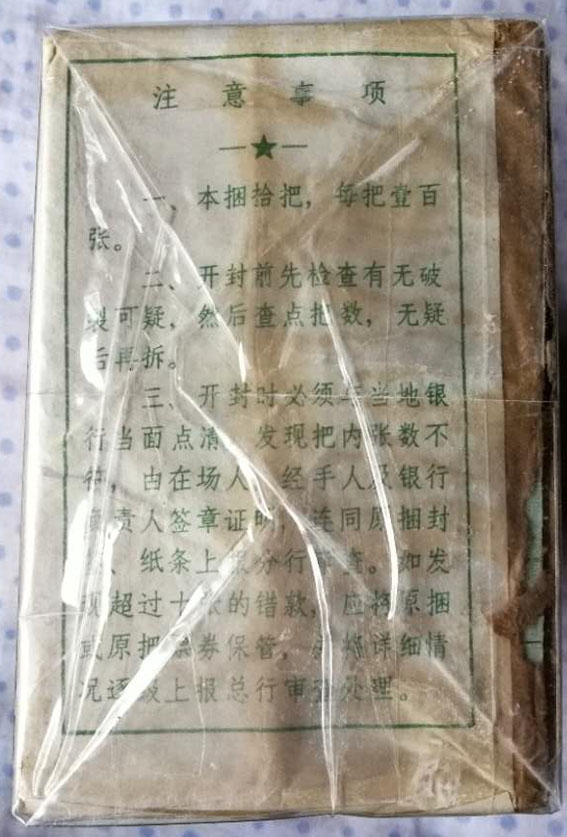 注意事项
一、本捆拾把，每把壹百
张。
二、开封前先检查有无破
裂可疑，然后查点把数，无疑
后再拆。
三、开封时必须与当地银
行当面点清，发现把内张数不
符，由在场人、经手人及银行
负责人签章证明，连同原捆封
、纸条上报分行审查。如发
现超过十张的错款，应将原捆
或原把票券保管，并将详细情
况逐级上报总行审查处理。